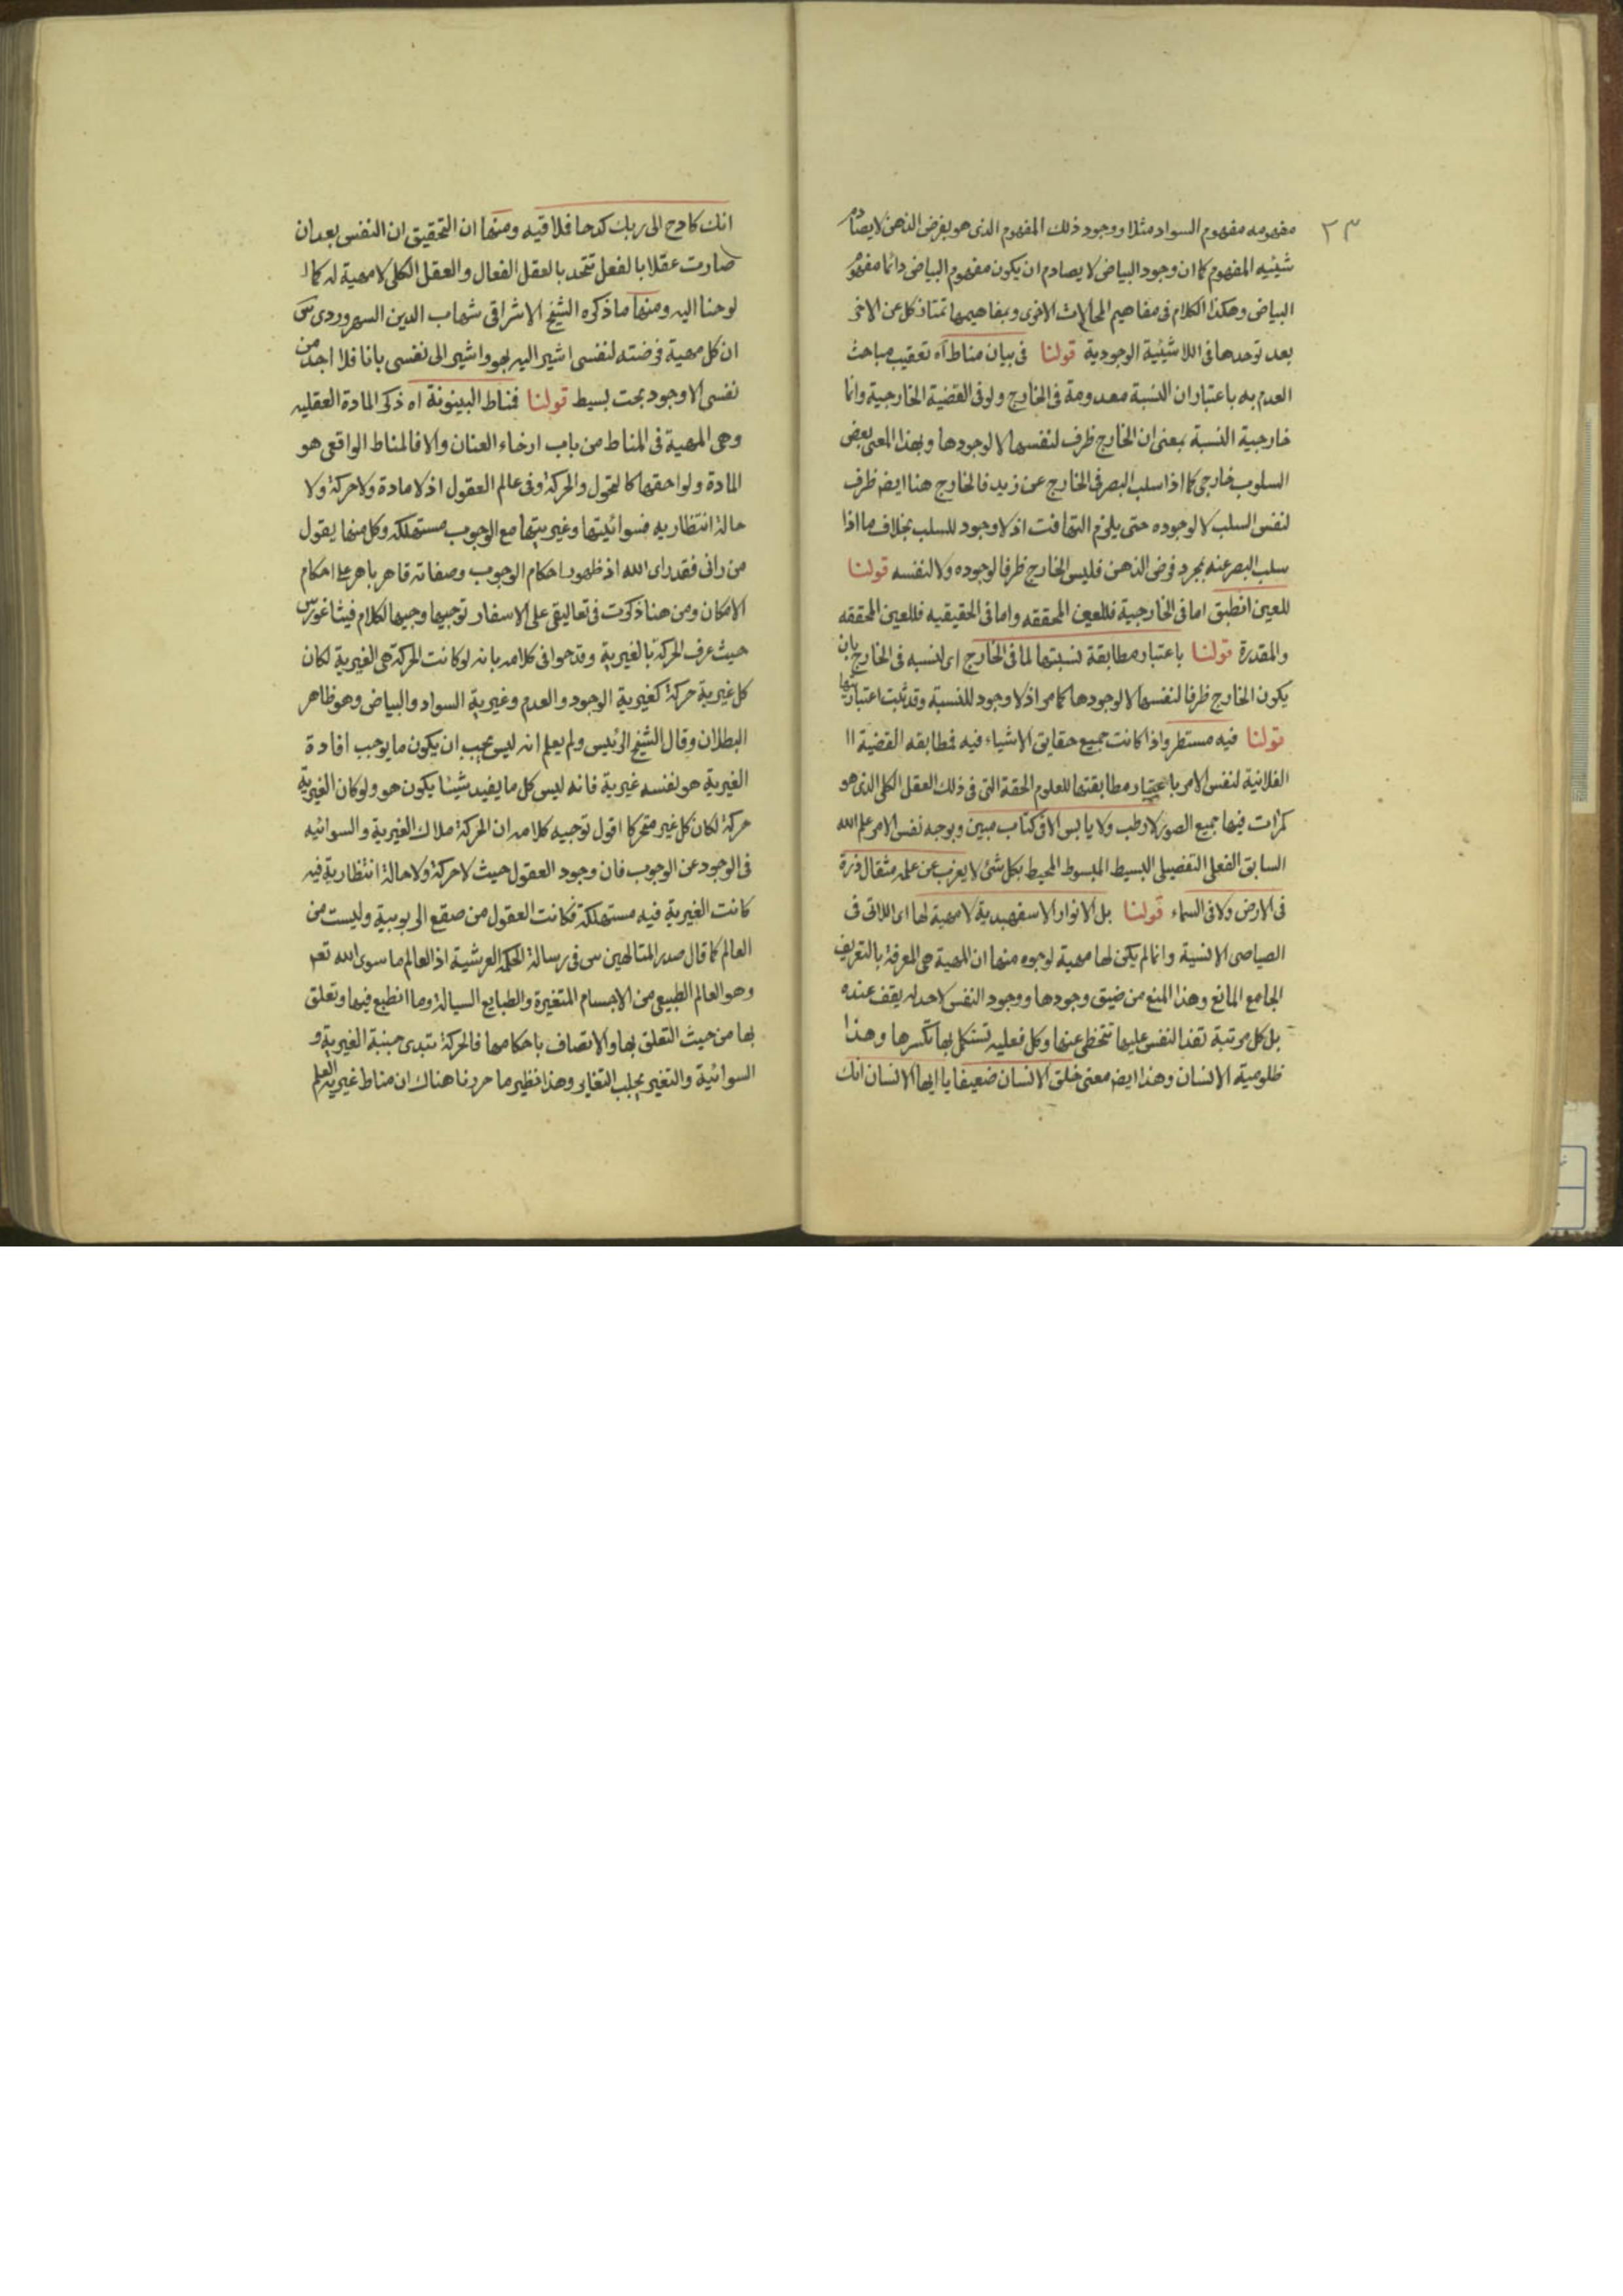 ٢٣
مفهومه مفهوم السواد مثلا ووجود ذلك المفهوم الذى هو بفرض الذهن لا يصادم
شيئيه المفهوم كما ان وجود البياض لا يصادم ان يكون مفهوم البياض دائما مفهوم
البياض وهكذا الكلام فى مفاهيم المحالات الاخرى وبمفاهيمها تمتاز كل عن الاخر
بعد توحدها فى اللاشيئية الوجودية قولنا فى بيان مناط آه تعقيب مباحث
العدم به باعتبار ان النسبة معدومة فى الخارج ولو فى القضية الخارجية وانما
خارجية النسبة بمعنى ان الخارج ظرف لنفسها لا لوجودها وبهذا المعنى بعض
السلوب خارجى كما اذا سلب البصر فى الخارج عن زيد فالخارج هنا ايضا ظرف
لنفس السلب لا لوجوده حتى يلزم التهافت اذ لا وجود للسلب بخلاف ما اذا
سلب البصر عنه بمجرد فرض الذهن فليس الخارج ظرفا لوجوده ولا لنفسه قولنا
للعين انطبق اما فى الخارجية فللعين المحققه واما فى الحقيقيه فللعين المحققه
والمقدرة قولنا باعتبار مطابقة نسبتها لما فى الخارج اى لنسبه فى الخارج بان
يكون الخارج ظرفا لنفسها لا لوجودها كما مر اذ لا وجود للنسبة وقد ثبت اعتباريتها
قولنا فيه مستطر واذا كانت جميع حقايق الاشياء فيه فمطابقه القضية اا
الفلانية لنفس الامر باعتبار مطابقتها للعلوم الحقة التى فى ذلك العقل الكلى الذى هو
كمرات فيها جميع الصور لا رطب ولا يابس الا فى كتاب مبين وبوجه نفس الامر علم الله
السابق الفعلى التفصيلى البسيط المبسوط المحيط بكل شئ لا يعزب عن علمه مثقال ذرة
فى الارض ولا فى السماء قولنا بل الانوار الاسفهبدية لا مهية لها اى اللاتى فى
الصياصى الانسية وانما لم يكن لها مهية لوجوه منها ان المهية هى المعرفة بالتعريف
الجامع المانع وهذا المنع من ضيق وجودها ووجود النفس لا حد له يقف عنده
بل كل مرتبة تفد النفس عليها تتخطى عنها وكل فعليه تستكمل بها تكسرها وهذا
ظلومية الانسان وهذا ايضا معنى خلق الانسان ضعيفا يا ايها الانسان انك
انك كادح الى ربك كدحا فملاقيه ومنها ان التحقيق ان النفس بعد ان
صارت عقلا بالفعل تتحد بالعقل الفعال والعقل الكلى لا مهية له كما ا
لوحنا اليه ومنها ما ذكره الشيخ الاشراقى شهاب الدين السهروردى س
ان كل مهية فرضته لنفسى اشير اليه بهو واشير الى نفسى بانا فلا اجد من
نفسى الا وجود بحت بسيط قولنا فمناط البينونة اه ذكر المادة العقليه
وهى المهية فى المناط من باب ارخاء العنان والا فالمناط الواقعى هو
المادة ولواحقها كالتحول والحركة وفى عالم العقول اذ لا مادة ولا حركة ولا
حالة انتظاريه فسوائيتها وغيريتها مع الوجوب مستهلكه وكل منها يقول
من رانى فقد راى الله اذ ظهور احكام الوجوب وصفاته قاهر باهر على احكام
الامكان ومن هنا ذكرت فى تعاليقى على الاسفار توجيها وجيها لكلام فيثاغورس
حيث عرف الحركة بالغيرية وقدحوا فى كلامه بانه لو كانت الحركة هى الغيرية لكان
كل غيرية حركة كغيرية الوجود والعدم وغيرية السواد والبياض وهو ظاهر
البطلان وقال الشيخ الرئيس ولم يعلم انه ليس يجب ان يكون ما يوجب افادة
الغيرية هو لنفسه غيرية فانه ليس كل ما يفيد شيئا يكون هو ولو كان الغيرية
حركة لكان كل غير متحركا اقول توجيه كلامه ان الحركة ملاك الغيرية والسوائيه
فى الوجود عن الوجوب فان وجود العقول حيث لا حركة ولا حالة انتظارية فيه
كانت الغيرية فيه مستهلكة فكانت العقول من صقع الربوبية وليست من
العالم كما قال صدر المتالهين س فى رسالة الحكمة العرشية اذ العالم ما سوى الله تعر
وهو العالم الطبيعى من الاجسام المتغيرة والطبايع السيالة وما انطبع فيها وتعلق
بها من حيث التعلق بها والاتصاف باحكامها فالحركة تبدى جنبة الغيرية و
السوائية والتغير يجلب التغاير وهذا نظير ما حررنا هناك ان مناط غيرية العلم